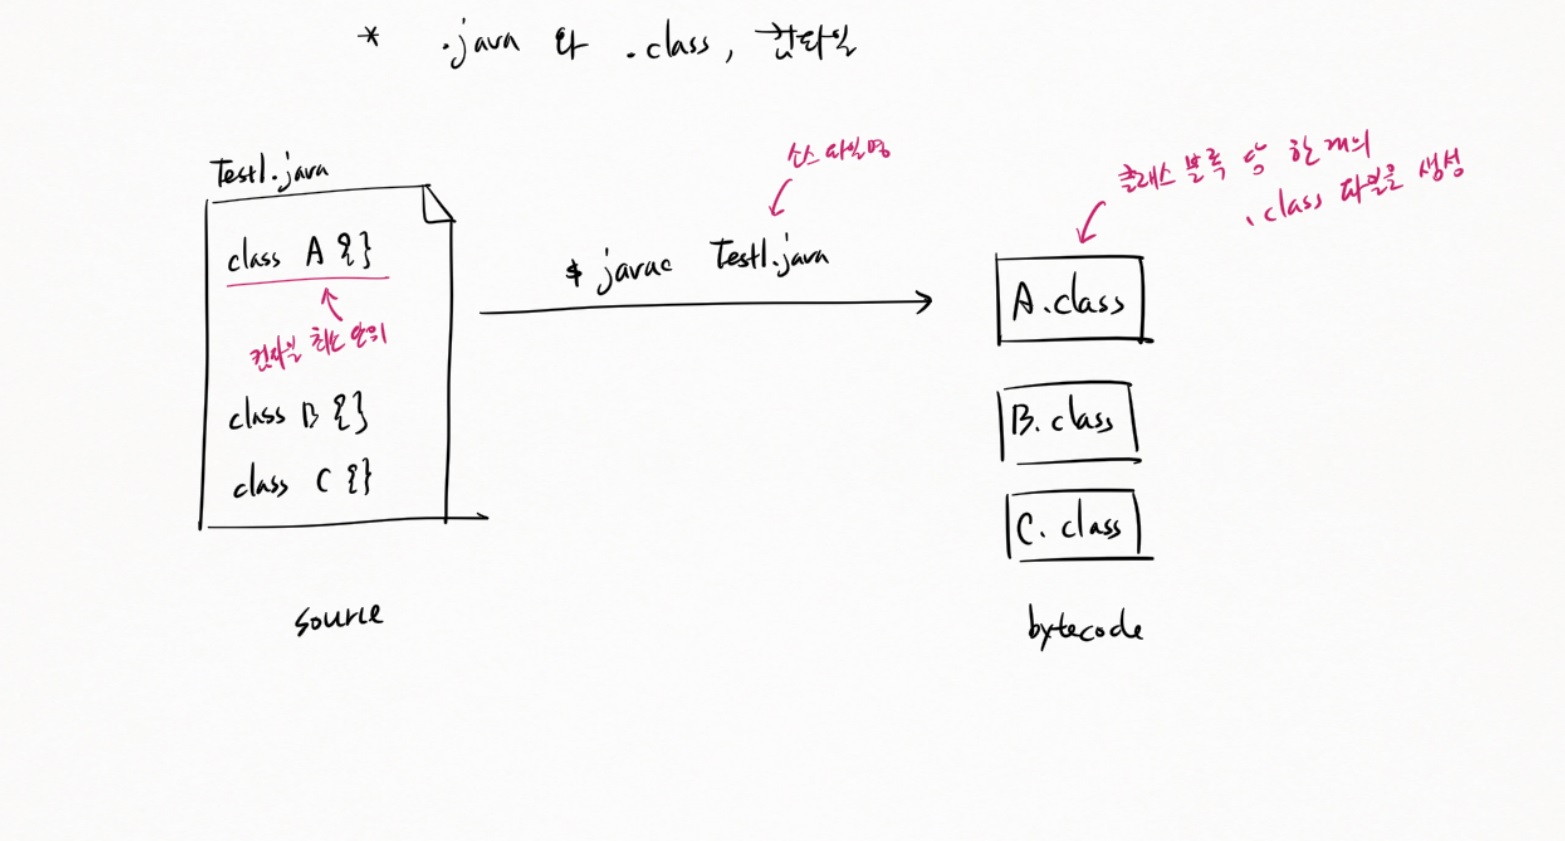 * .java 와 .class, 컴파일
Test1.java
class A {}
컴파일 최소 단위
class B {}
class C {}
source
소스 파일명
$ javac Test1.java
클래스 블록 당 한 개의
.class 파일을 생성
A.class
B.class
C.class
bytecode